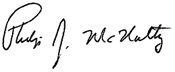 Philip J. McNulty